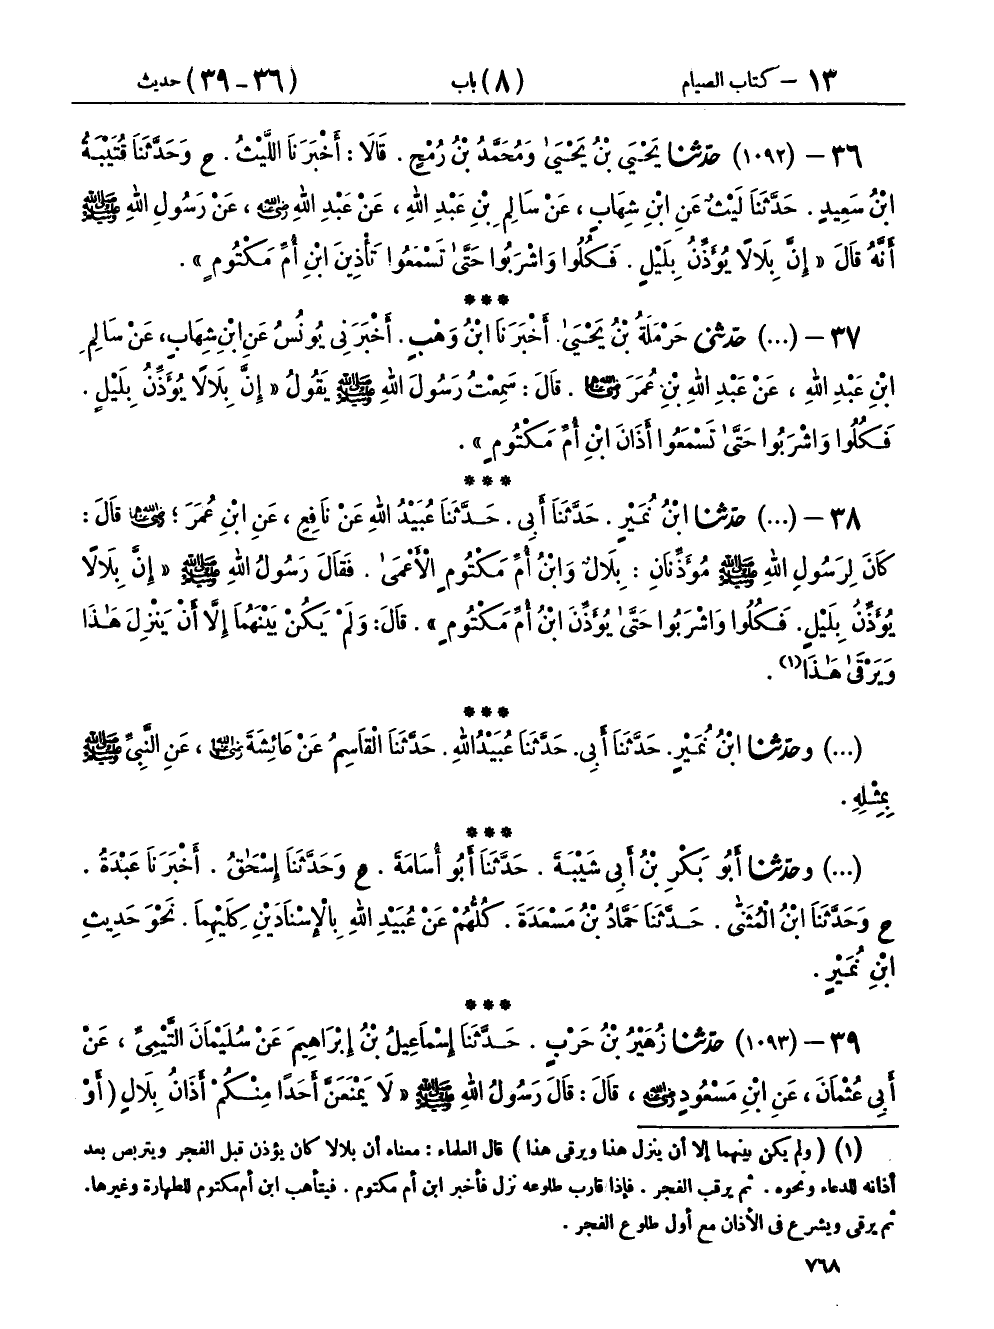 ١٣ – كتاب الصيام (٨) باب (٣٦ – ٣٩) حديث
٣٦ – (١٠٩٢) حَدَّثَنَا يَحْيَىٰ بْنُ يَحْيَىٰ وَمُحَمَّدُ بْنُ رُمْحٍ . قَالَا : أَخْبَرَنَا اللَّيْثُ . ح وَحَدَّثَنَا قُتَيْبَةُ
ابْنُ سَعِيدٍ . حَدَّثَنَا لَيْثٌ عَنِ ابْنِ شِهَابٍ ، عَنْ سَالِمِ بْنِ عَبْدِ اللهِ ، عَنْ عَبْدِ اللهِ رضي الله عنه ، عَنْ رَسُولِ اللهِ ﷺ
أَنَّهُ قَالَ « إِنَّ بِلَالًا يُؤَذِّنُ بِلَيْلٍ . فَكُلُوا وَاشْرَبُوا حَتَّىٰ تَسْمَعُوا تَأْذِينَ ابْنِ أُمِّ مَكْتُومٍ » .
***
٣٧ – (...) حَدَّثَنِي حَرْمَلَةُ بْنُ يَحْيَىٰ . أَخْبَرَنَا ابْنُ وَهْبٍ . أَخْبَرَنِي يُونُسُ عَنِ ابْنِ شِهَابٍ ، عَنْ سَالِمِ
ابْنِ عَبْدِ اللهِ ، عَنْ عَبْدِ اللهِ بْنِ عُمَرَ رضي الله عنهما . قَالَ : سَمِعْتُ رَسُولَ اللهِ ﷺ يَقُولُ « إِنَّ بِلَالًا يُؤَذِّنُ بِلَيْلٍ .
فَكُلُوا وَاشْرَبُوا حَتَّىٰ تَسْمَعُوا أَذَانَ ابْنِ أُمِّ مَكْتُومٍ » .
***
٣٨ – (...) حَدَّثَنَا ابْنُ نُمَيْرٍ . حَدَّثَنَا أَبِي . حَدَّثَنَا عُبَيْدُ اللهِ عَنْ نَافِعٍ ، عَنِ ابْنِ عُمَرَ ؛ رضي الله عنهما قَالَ :
كَانَ لِرَسُولِ اللهِ ﷺ مُؤَذِّنَانِ : بِلَالٌ وَابْنُ أُمِّ مَكْتُومٍ الْأَعْمَىٰ . فَقَالَ رَسُولُ اللهِ ﷺ « إِنَّ بِلَالًا
يُؤَذِّنُ بِلَيْلٍ . فَكُلُوا وَاشْرَبُوا حَتَّىٰ يُؤَذِّنَ ابْنُ أُمِّ مَكْتُومٍ » . قَالَ : وَلَمْ يَكُنْ بَيْنَهُمَا إِلَّا أَنْ يَنْزِلَ هَٰذَا
وَيَرْقَىٰ هَٰذَا(١) .
***
(...) وحَدَّثَنَا ابْنُ نُمَيْرٍ . حَدَّثَنَا أَبِي . حَدَّثَنَا عُبَيْدُ اللهِ . حَدَّثَنَا الْقَاسِمُ عَنْ عَائِشَةَ رضي الله عنها ، عَنِ النَّبِيِّ ﷺ
بِمِثْلِهِ .
***
(...) وحَدَّثَنَا أَبُو بَكْرِ بْنُ أَبِي شَيْبَةَ . حَدَّثَنَا أَبُو أُسَامَةَ . ح وَحَدَّثَنَا إِسْحَٰقُ . أَخْبَرَنَا عَبْدَةُ .
ح وَحَدَّثَنَا ابْنُ الْمُثَنَّىٰ . حَدَّثَنَا حَمَّادُ بْنُ مَسْعَدَةَ . كُلُّهُمْ عَنْ عُبَيْدِ اللهِ بِالْإِسْنَادَيْنِ كِلَيْهِمَا . نَحْوَ حَدِيثِ
ابْنِ نُمَيْرٍ .
***
٣٩ – (١٠٩٣) حَدَّثَنَا زُهَيْرُ بْنُ حَرْبٍ . حَدَّثَنَا إِسْمَاعِيلُ بْنُ إِبْرَاهِيمَ عَنْ سُلَيْمَانَ التَّيْمِيِّ ، عَنْ
أَبِي عُثْمَانَ ، عَنِ ابْنِ مَسْعُودٍ رضي الله عنه ، قَالَ : قَالَ رَسُولُ اللهِ ﷺ « لَا يَمْنَعَنَّ أَحَدًا مِنْكُمْ أَذَانُ بِلَالٍ ( أَوْ
(١) ( ولم يكن بينهما إلا أن ينزل هذا ويرقى هذا ) قال العلماء : معناه أن بلالا كان يؤذن قبل الفجر ويتربص بعد
أذانه للدعاء ونحوه . ثم يرقب الفجر . فإذا قارب طلوعه نزل فأخبر ابن أم مكتوم . فيتأهب ابن أم مكتوم للطهارة وغيرها .
ثم يرقى ويشرع فى الأذان مع أول طلوع الفجر .
٧٦٨